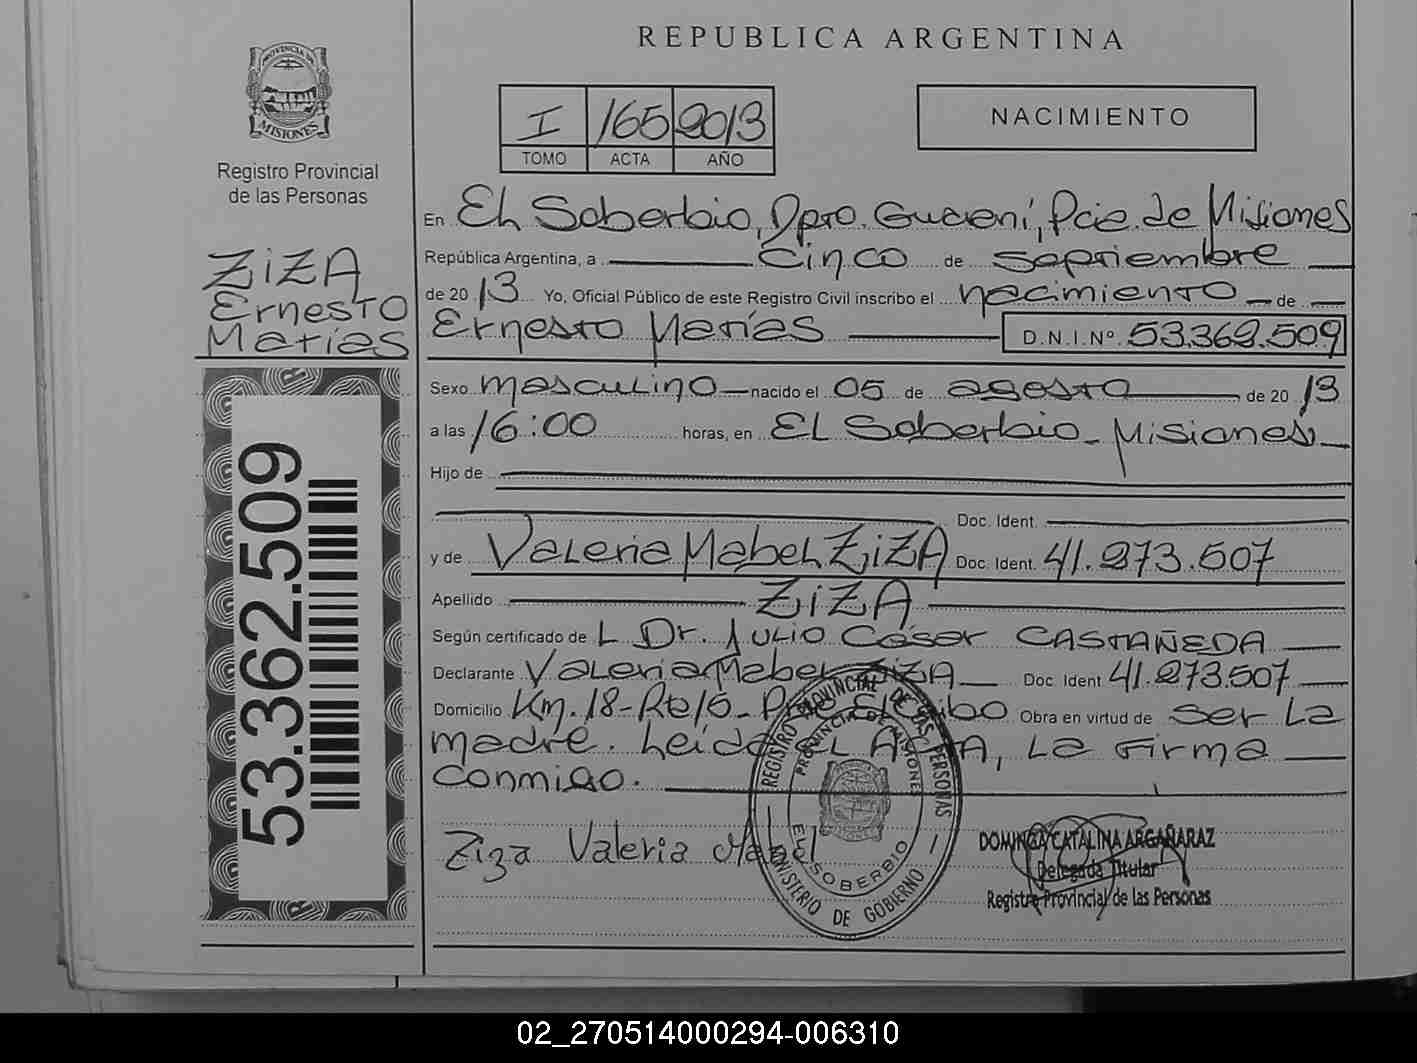 REPUBLICA ARGENTINA
PROVINCIA DE
MISIONES
Registro Provincial
de las Personas
I 165 2013
TOMO ACTA AÑO
NACIMIENTO
ZiZA
Ernesto
Matías
53.362.509
En El Soberbio, Dpto. Guaraní, Pcia. de Misiones
República Argentina, a cinco de septiembre
de 2013 Yo, Oficial Público de este Registro Civil inscribo el nacimiento de
Ernesto Matías D.N.I.Nº 53.362.509
Sexo masculino nacido el 05 de agosto de 2013
a las 16:00 horas, en El Soberbio - Misiones
Hijo de
Doc. Ident.
y de Valeria Mabel ZiZA Doc. Ident. 41.273.507
Apellido ZiZA
Según certificado de L Dr. Julio César CASTAÑEDA
Declarante Valeria Mabel ZiZA Doc. Ident 41.273.507
Domicilio Km. 18 - Obra en virtud de ser la
madre. Leída el ACTA, la firma
conmigo.
Ziza Valeria Mabel
REGISTRO PROVINCIAL DE LAS PERSONAS
PROVINCIA DE MISIONES
EL SOBERBIO
MINISTERIO DE GOBIERNO
DOMINGA CATALINA ARGAÑARAZ
Delegada Titular
Registro Provincial de las Personas
02_270514000294-006310